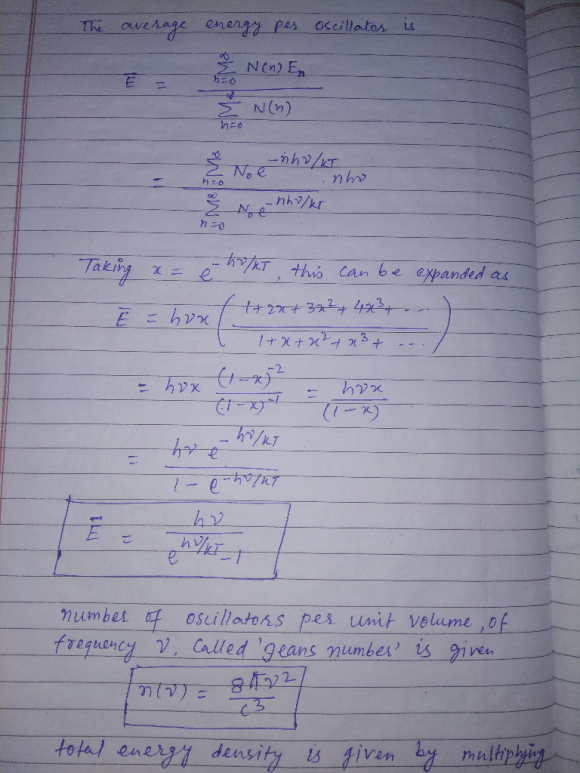 The average energy per oscillators is
Ē = ∑_{n=0}^{∞} N(n) Eₙ / ∑_{n=0}^{∞} N(n)
= ∑_{n=0}^{∞} N₀ e^{-nhν/kT} . nhν / ∑_{n=0}^{∞} N₀ e^{-nhν/kT}
Taking x = e^{-hν/kT}, this can be expanded as
Ē = hνx ( 1+2x+3x²+4x³+ ... / 1+x+x²+x³+ ... )
= hνx (1-x)⁻² / (1-x)⁻¹ = hνx / (1-x)
= hν e^{-hν/kT} / 1 - e^{-hν/kT}
Ē = hν / e^{hν/kT} - 1
number of oscillators per unit volume, of
frequency ν, called 'Jeans number' is given
n(ν) = 8πν² / c³
total energy density is given by multiplying